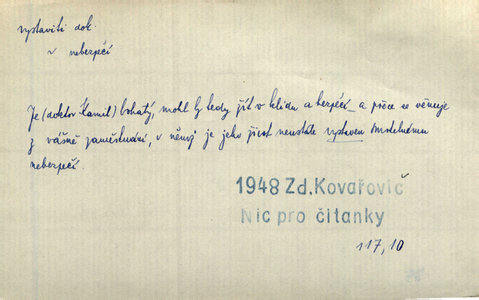 vystaviti dok.
v nebezpečí
Je (doktor Kamil) bohatý, mohl by tedy žít v klidu a bezpečí a přece se věnuje
z vášně zaměstnání, v němž je jeho život neustále vystaven smrtelnému
nebezpečí.
1948 Zd. Kovařovič
Nic pro čitanky
117, 10